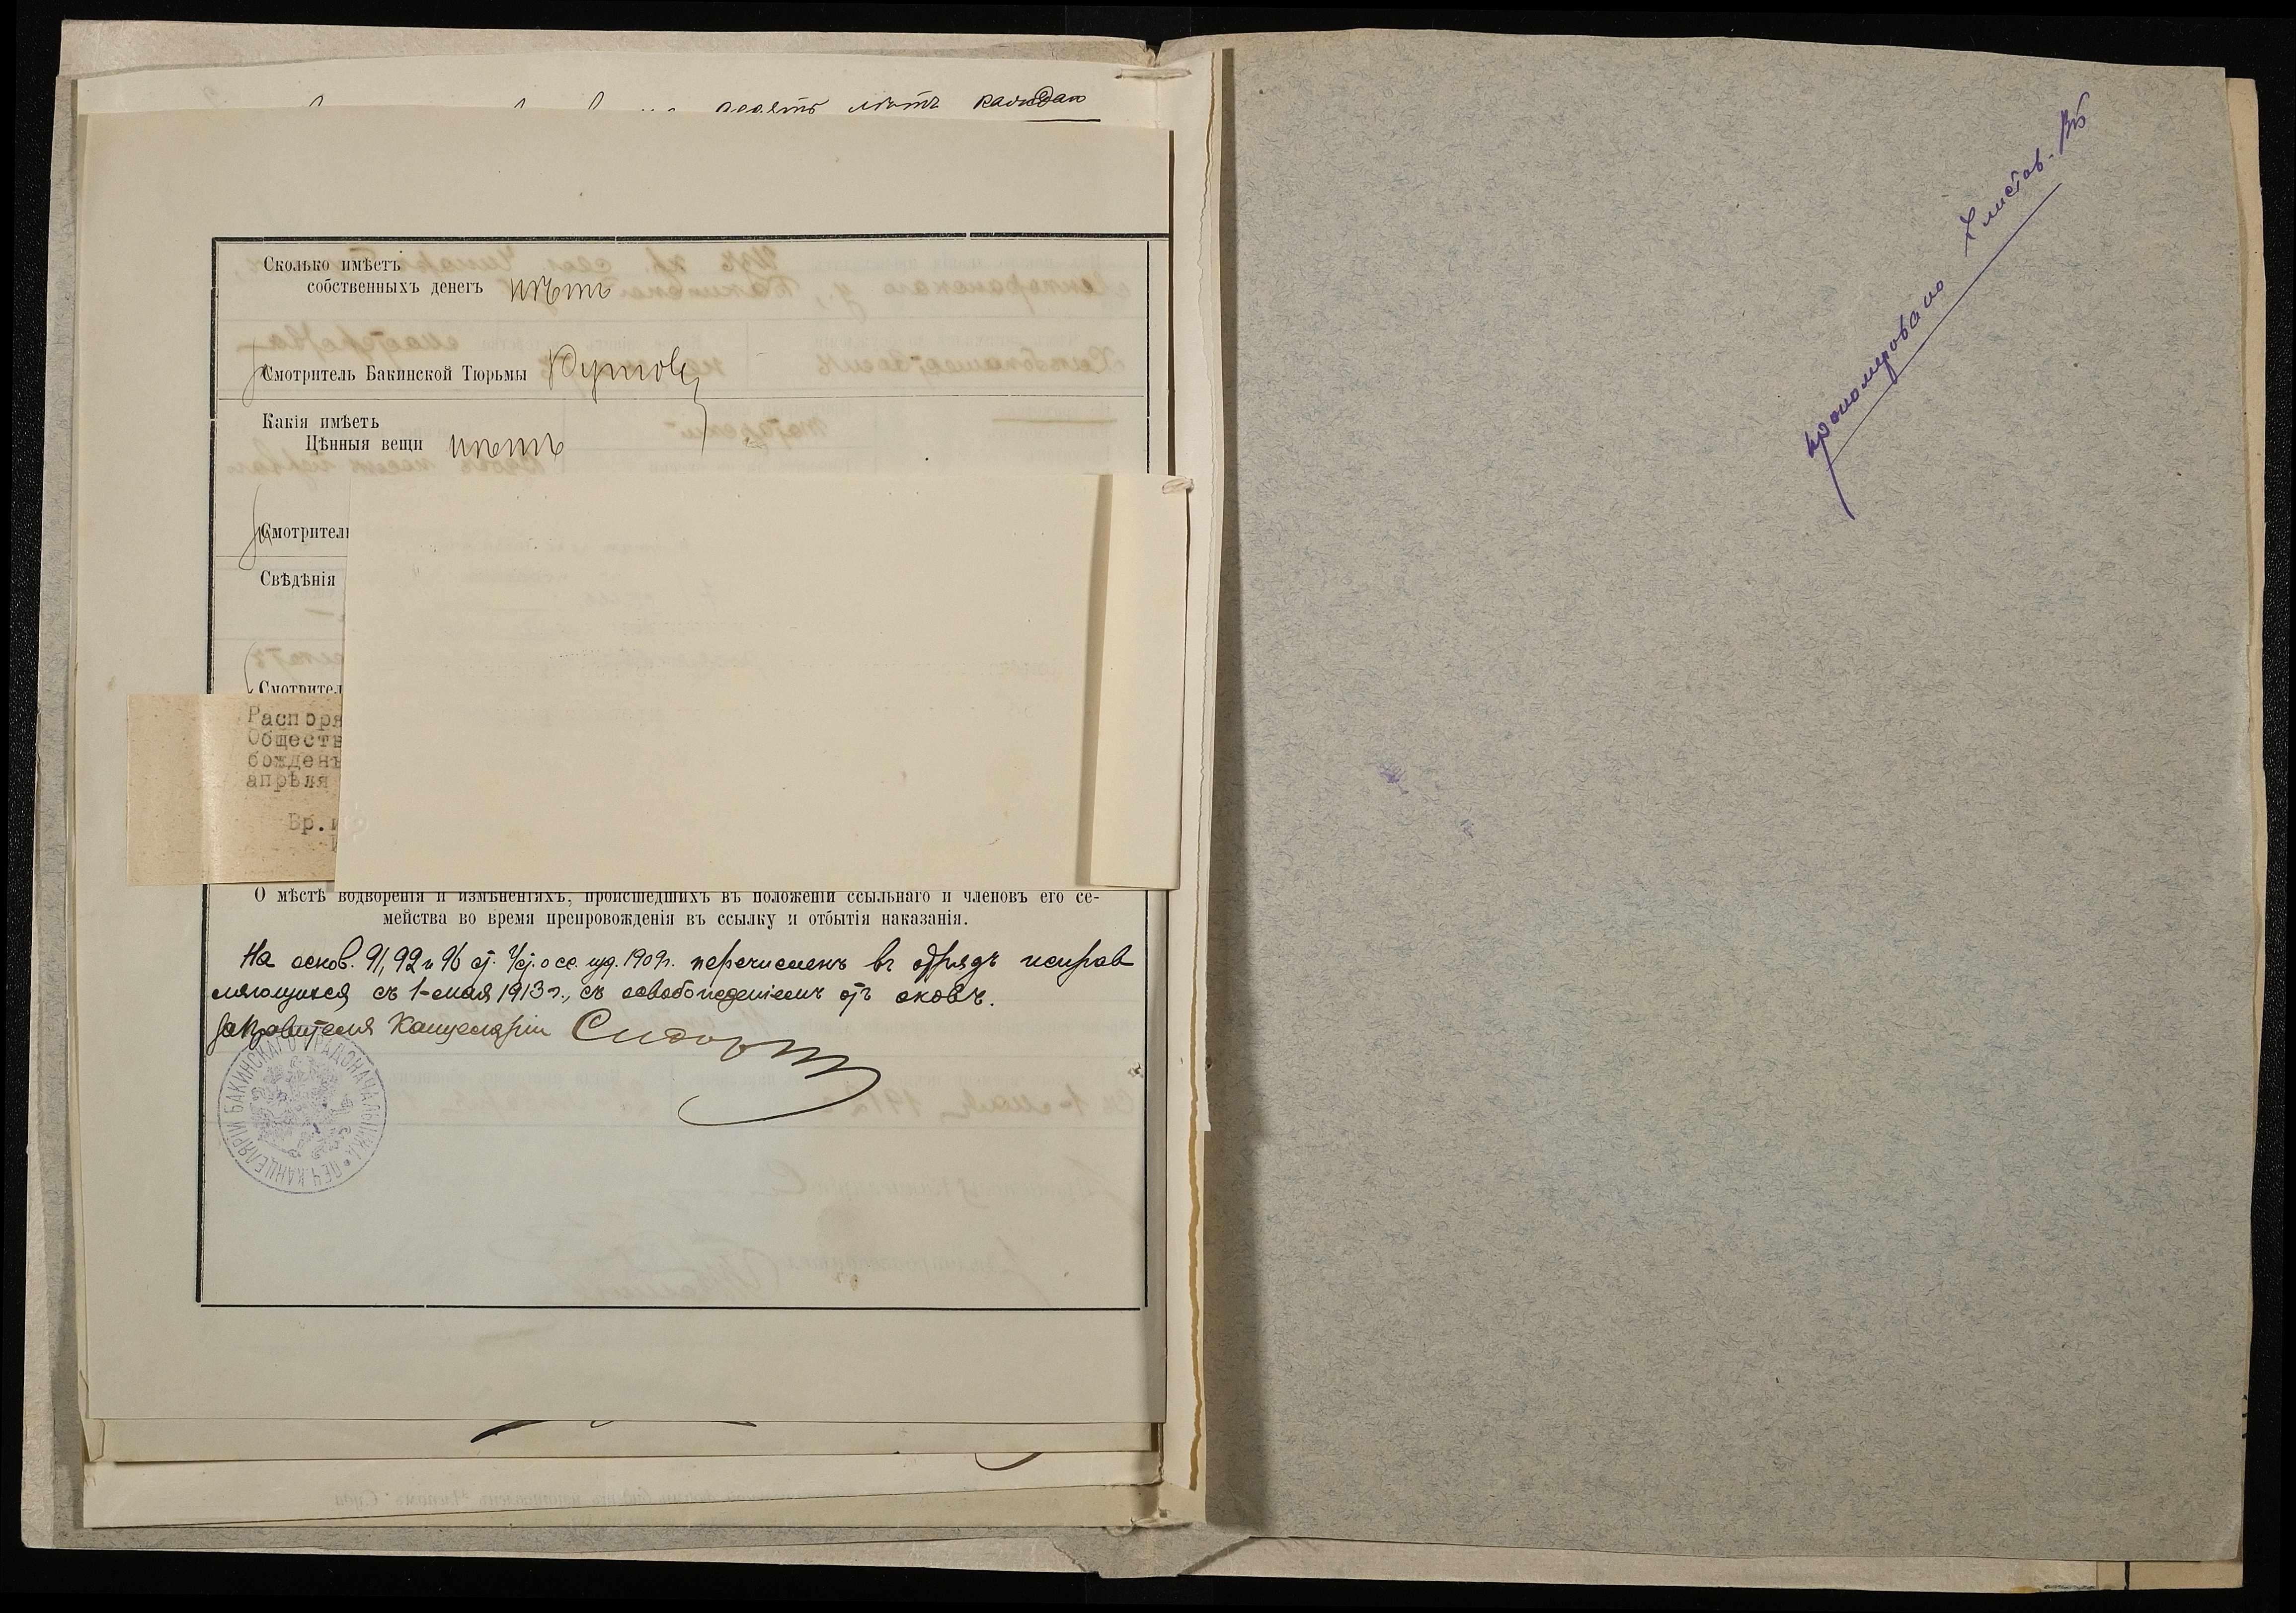 десять лѣтъ каждаго
Сколько имѣетъ
собственныхъ денегъ нѣтъ
Смотритель Бакинской Тюрьмы
Какія имѣетъ
Цѣнныя вещи нѣтъ
Смотритель
Свѣдѣнія
Смотрител
Распоря
Обществ
божденъ
апрѣля
Вр.и
О мѣстѣ водворенія и измѣненіяхъ, происшедшихъ въ положеніи ссыльнаго и членовъ его се-
мейства во время препровожденія въ ссылку и отбытія наказанія.
На основ. 91, 92 и 96 ст. Уст. о сс. изд. 1909 г. перечисленъ въ отрядъ исправ
ляющихся съ 1-мая 1913 г., съ освобожденіемъ отъ оковъ.
За Правителя Канцеляріи
ПЕЧ. КАНЦЕЛЯРІИ БАКИНСКАГО ГРАДОНАЧАЛЬНИКА
пронумеровано листов.